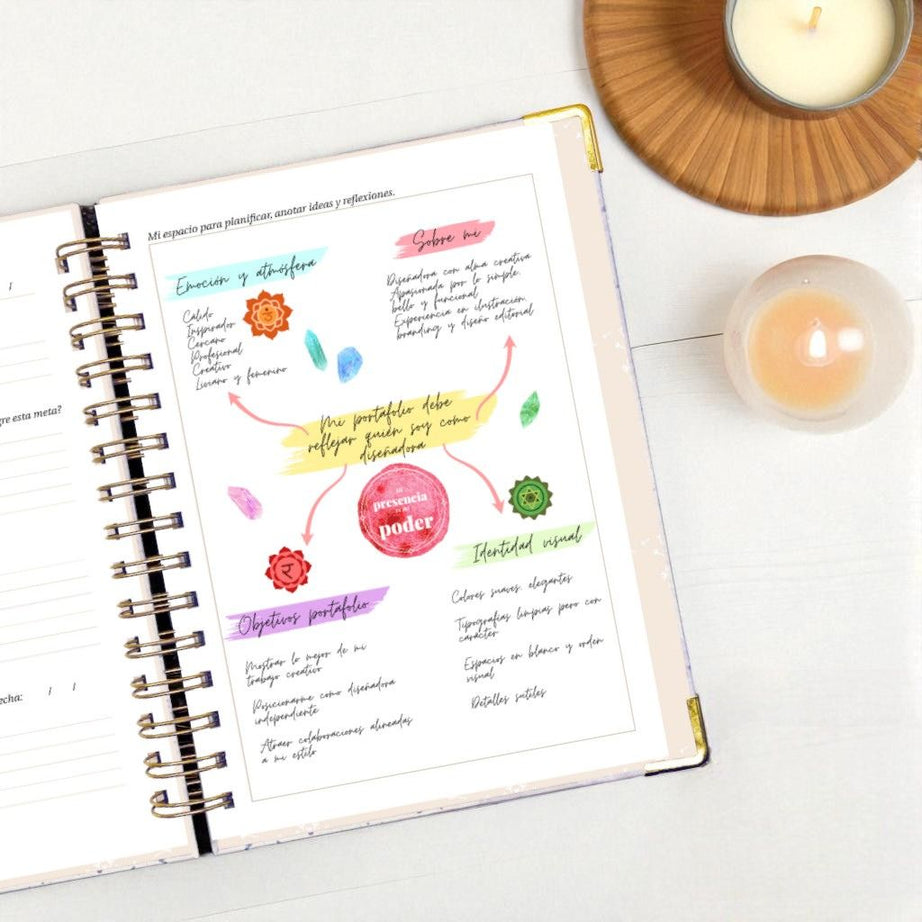 Mi espacio para planificar, anotar ideas y reflexiones.
Emoción y atmósfera
Cálido
Inspirador
Cercano
Profesional
Creativo
Liviano y femenino
Sobre mi
Diseñadora con alma creativa
Apasionada por lo simple,
bello y funcional
Experiencia en ilustración,
branding y diseño editorial
Mi portafolio debe
reflejar quién soy como
diseñadora
presencia
poder
Objetivos portafolio
Mostrar lo mejor de mi
trabajo creativo
Posicionarme como diseñadora
independiente
Atraer colaboraciones alineadas
a mi estilo
Identidad visual
Colores suaves, elegantes
Tipografías limpias pero con
carácter
Espacios en blanco y orden
visual
Detalles sutiles
esta meta?
/ /